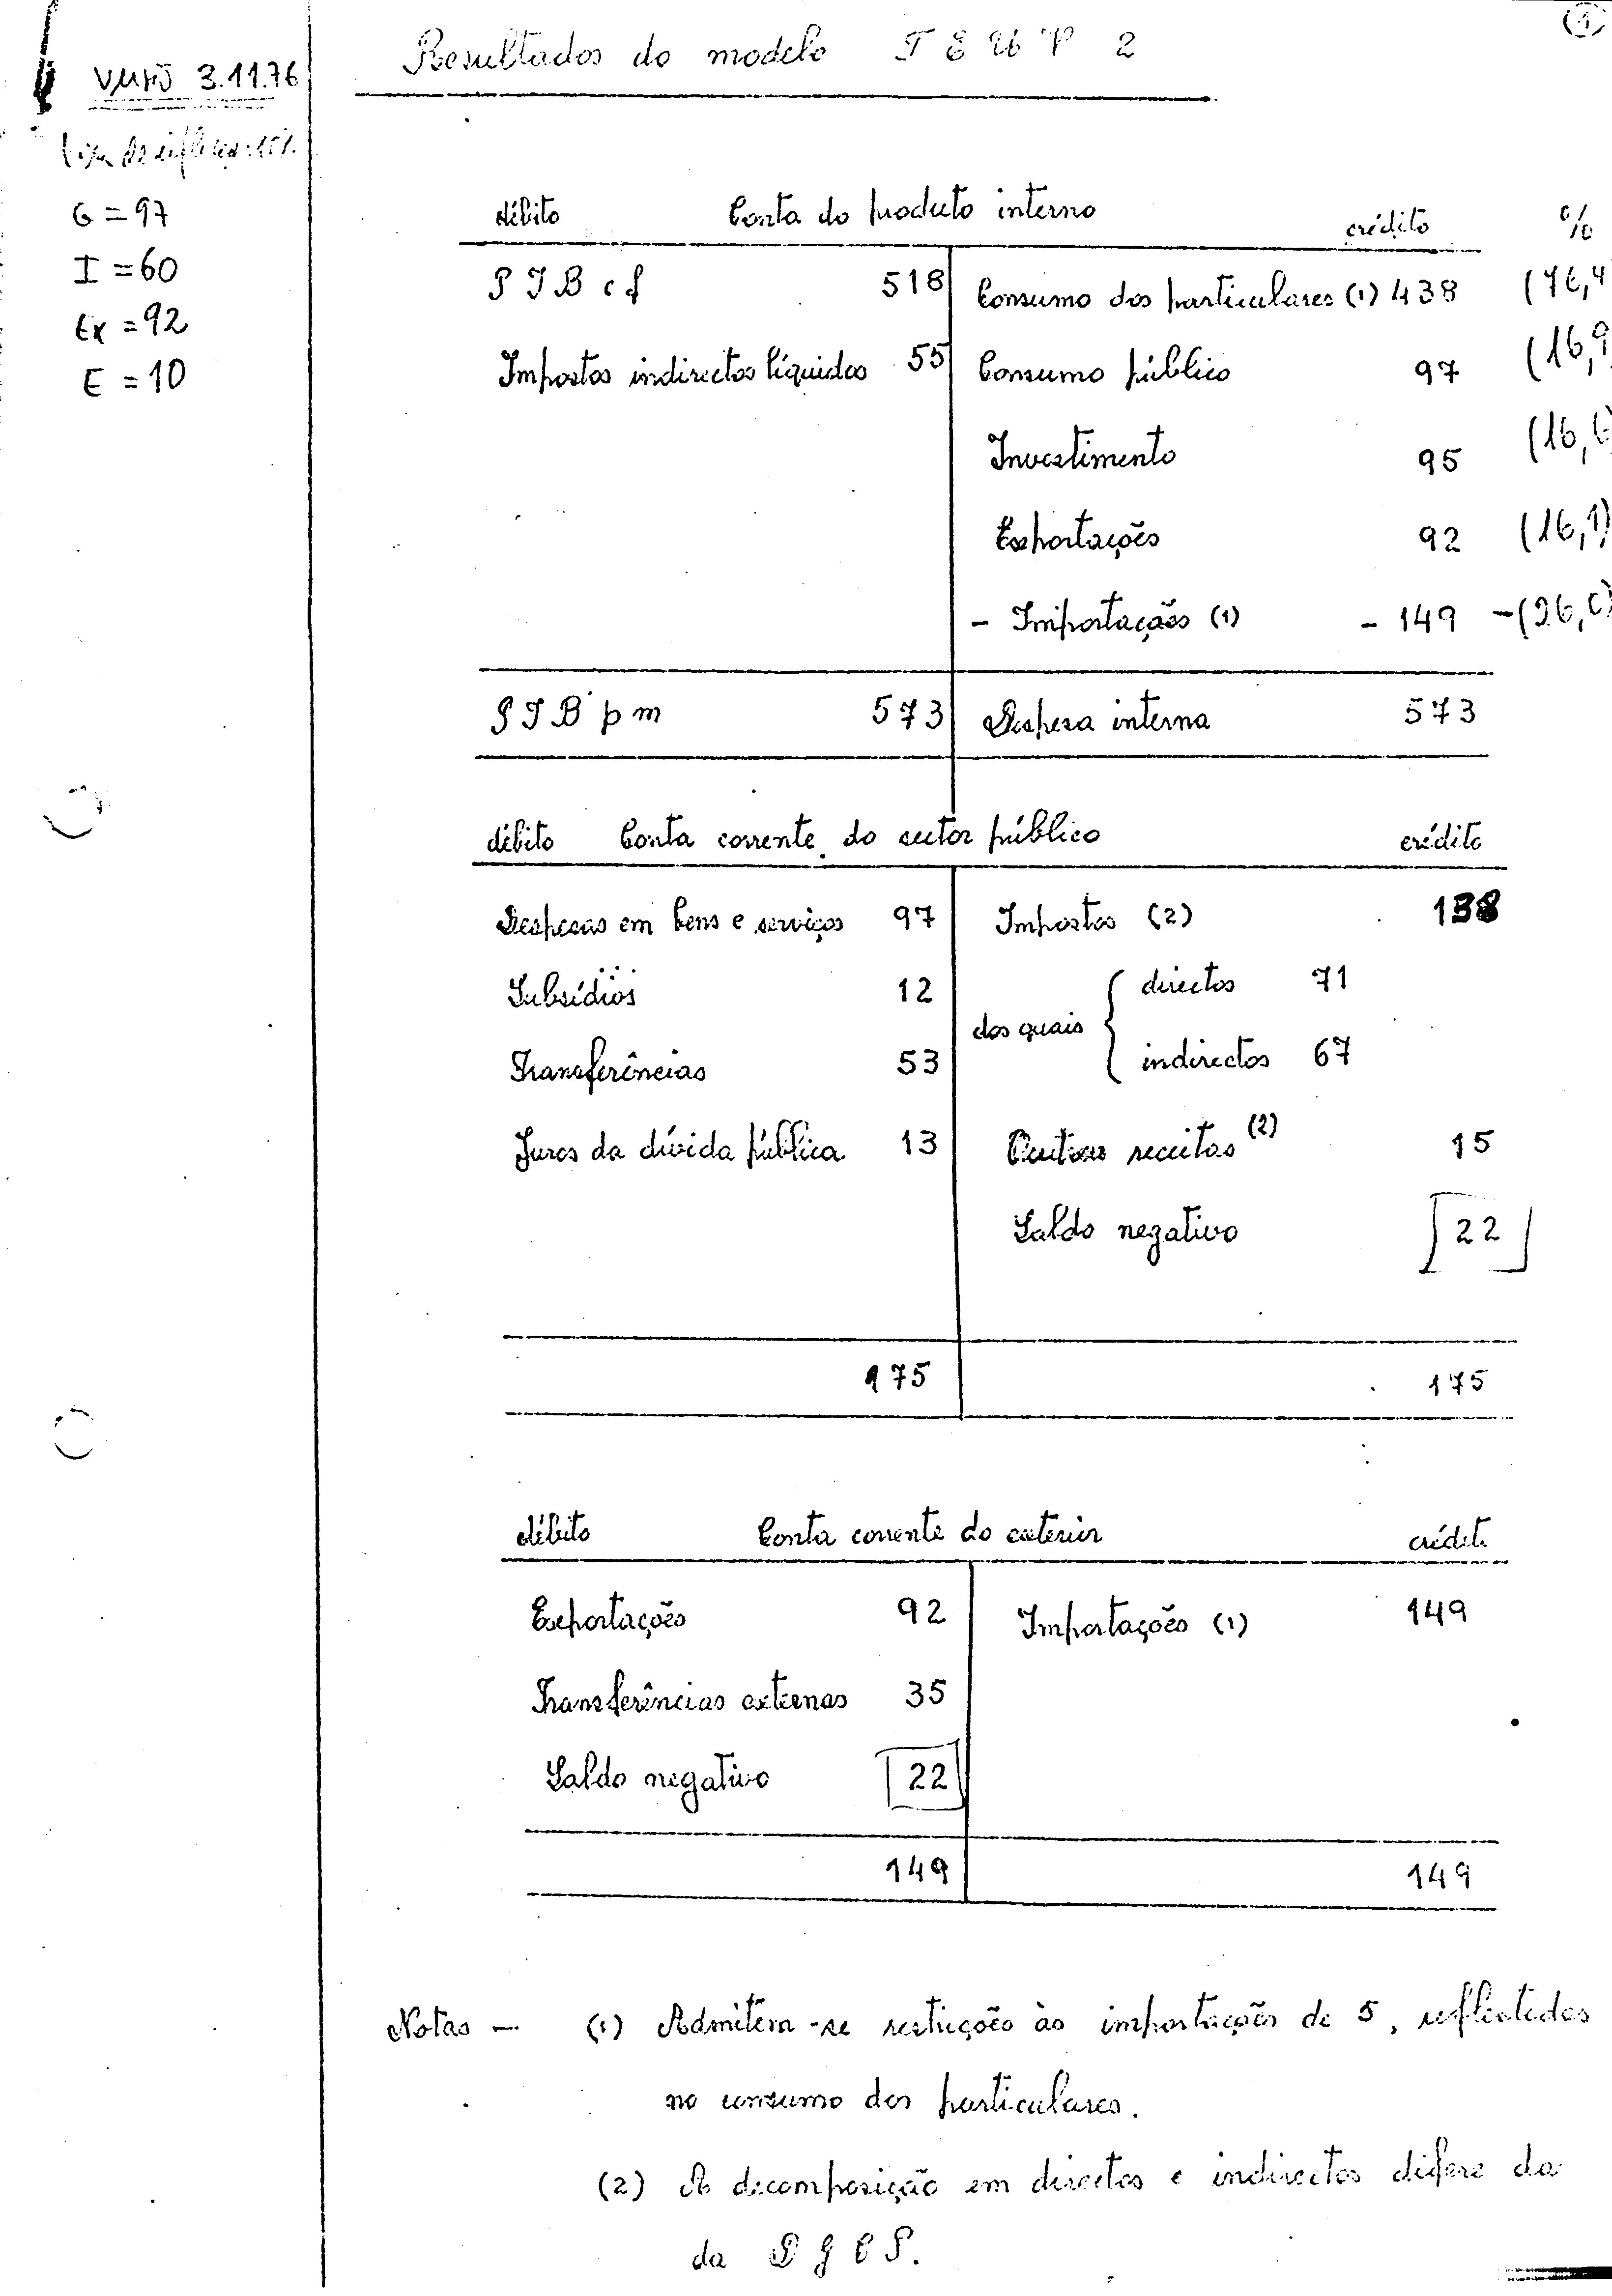 (1)
Resultados do modelo TEMP 2
Versão 3.11.76
Taxa de inflação: 15%
G = 97
I = 60
Ex = 92
E = 10
débito Conta do produto interno crédito %
PIB cf 518 Consumo dos particulares (1) 438 (76,4
Impostos indirectos líquidos 55 Consumo público 97 (16,9
Investimento 95 (16,6
Exportações 92 (16,1)
- Importações (1) - 149 -(26,0)
PIB pm 573 Despesa interna 573
débito Conta corrente do sector público crédito
Despesas em bens e serviços 97 Impostos (2) 138
Subsídios 12 dos quais { directos 71
Transferências 53 indirectos 67
Juros da dívida pública 13 Outras receitas (2) 15
Saldo negativo 22
175 175
débito Conta corrente do exterior crédito
Exportações 92 Importações (1) 149
Transferências externas 35
Saldo negativo 22
149 149
Notas — (1) Admitem-se restrições às importações de 5, reflectidas
no consumo dos particulares.
(2) A decomposição em directos e indirectos difere da
da DGCP.